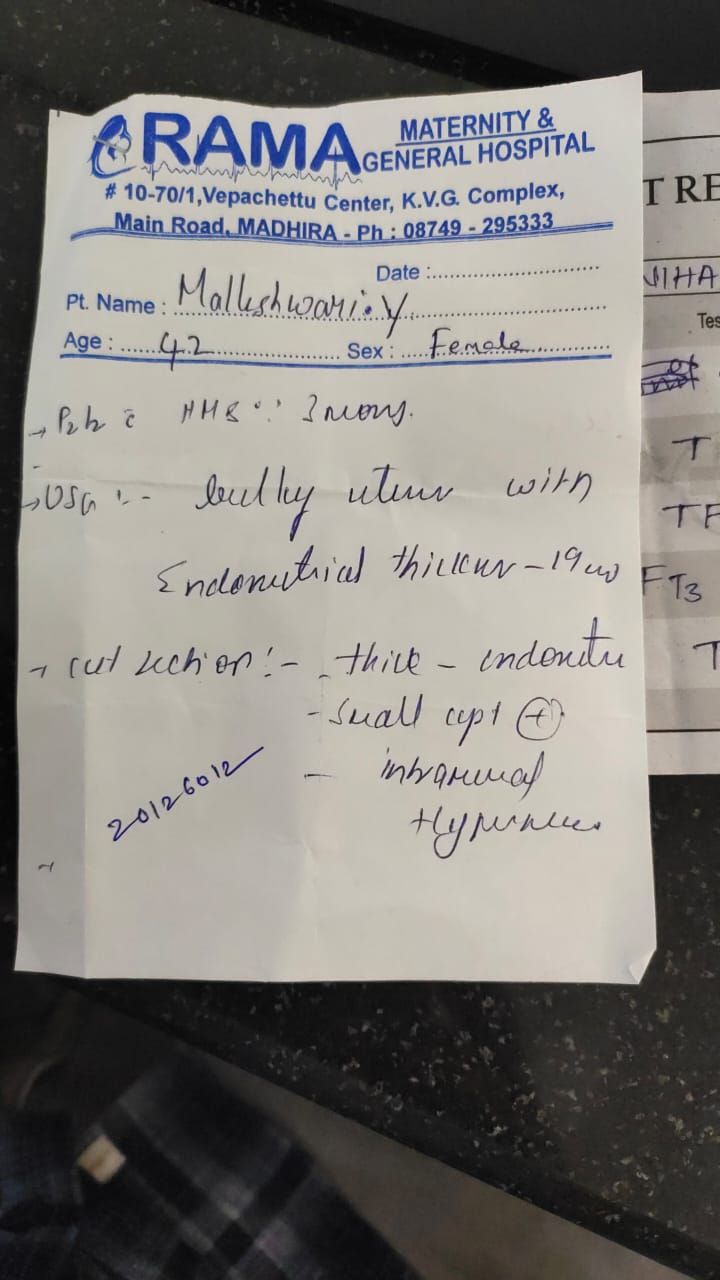 RAMA MATERNITY & GENERAL HOSPITAL
# 10-70/1, Vepachettu Center, K.V.G. Complex,
Main Road, MADHIRA - Ph : 08749 - 295333
Date :
Pt. Name : Malleshwari. Y
Age : 42 Sex : Female
→ P2L2 c̄ HMB ∵ 3 mons.
→ USG :- bulky uterus with
Endometrial thickness - 19
→ cut section :- - thick - endometrium
- small cyst (+)
- intramural
20126012
T RE
NIHA
Tes
T
TF
FT3
T